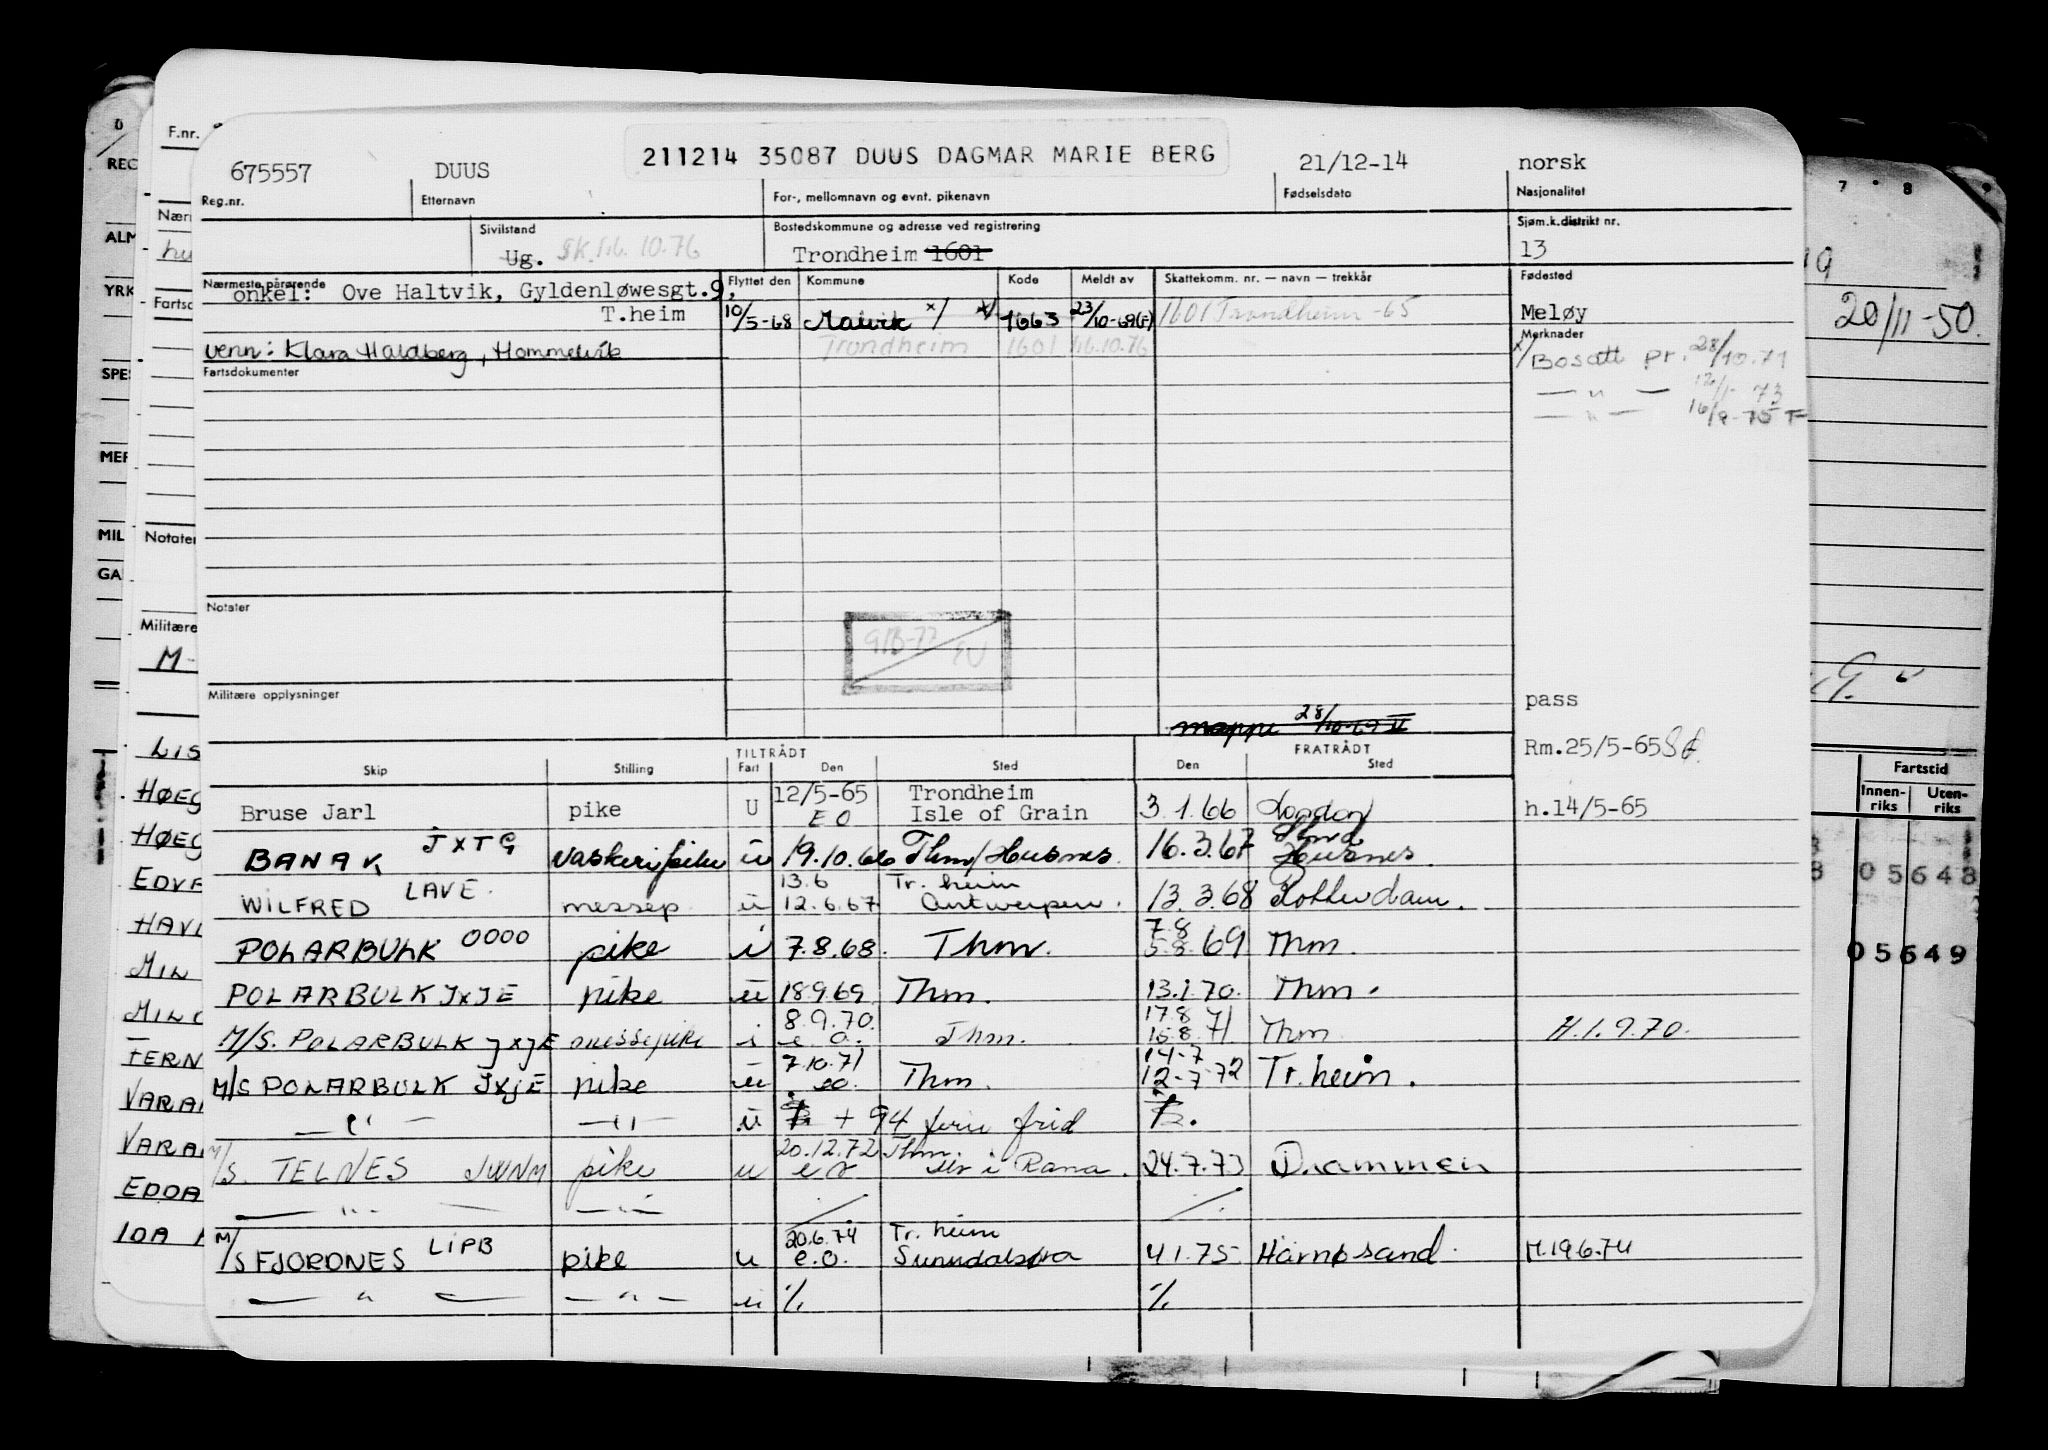 211214 35087 DUUS DAGMAR MARIE BERG
675557 DUUS 21/12-14 norsk
Reg.nr. Etternavn For-, mellomnavn og evnt. pikenavn Fødselsdato Nasjonalitet
Sivilstand Bostedskommune og adresse ved registrering Sjøm.k.distrikt nr.
Ug. 16.10.76 Trondheim 1601 13
Nærmeste pårørende Flyttet den Kommune Kode Meldt av Skattekomm. nr. — navn — trekkår Fødested
onkel: Ove Haltvik, Gyldenløwesgt.9,
T.heim 10/5-68 Malvik x/ 1663 23/10-69(F) 1601 Trondheim -65 Meløy
Merknader
venn: Klara Haldberg, Hommelvik Trondheim 1601 16.10.76 x/ Bosatt pr. 28/10.71
Fartsdokumenter
— " — 12/1-73
— " — 16/9-75 F
Notater
Militære opplysninger
pass
mappe 28/10-69
Rm.25/5-65
TILTRÅDT FRATRÅDT
Skip Stilling Fart Den Sted Den Sted
Bruse Jarl pike U 12/5-65 EO Trondheim Isle of Grain 3.1.66 London h.14/5-65
BANAK JXTG vaskeripike u 19.10.66 Thm/Husnes 16.3.67 Husnes
WILFRED LAVE messep. u 13.6 12.6.67 Tr.heim Antwerpen. 13.3.68 Rotterdam.
POLARBULK OOOO pike i 7.8.68. Thm. 7.8 5.8.69 Thm.
POLARBULK JXJE pike u 18.9.69 Thm. 13.1.70. Thm.
M/S. POLARBULK JXJE messepike i 8.9.70. e.o. Thm. 17.8 15.8.71 Thm H.1.9.70.
M/S POLARBULK JXJE pike u 7.10.71 eo. Thm. 14-7 12-7-72 Tr.heim.
— " — — " — u + 94 ferie frid
M/S. TELNES JWNM pike u 20.12.72 e o Thm. i Rana. 24.7.73 Drammen
— " — — " —
M/S FJORDNES LIPB pike u 20.6.74 e.o. Tr.heim Sunndalsøra 4.1.75 Härnøsand. M.19.6.74
— " — — " — u % %
F.nr.
REG
Nærm
ALM
YRK
Fartsd
SPES
MER
MIL
Notater
GA
Militære
M-
LIS
HØEG
HØEG
EDVA
HAVL
MIN
MIN
FERN
VARA
VARA
EDOA
IDA
7 8
20/11-50.
Fartstid
Innen-riks Uten-riks
05648
05649